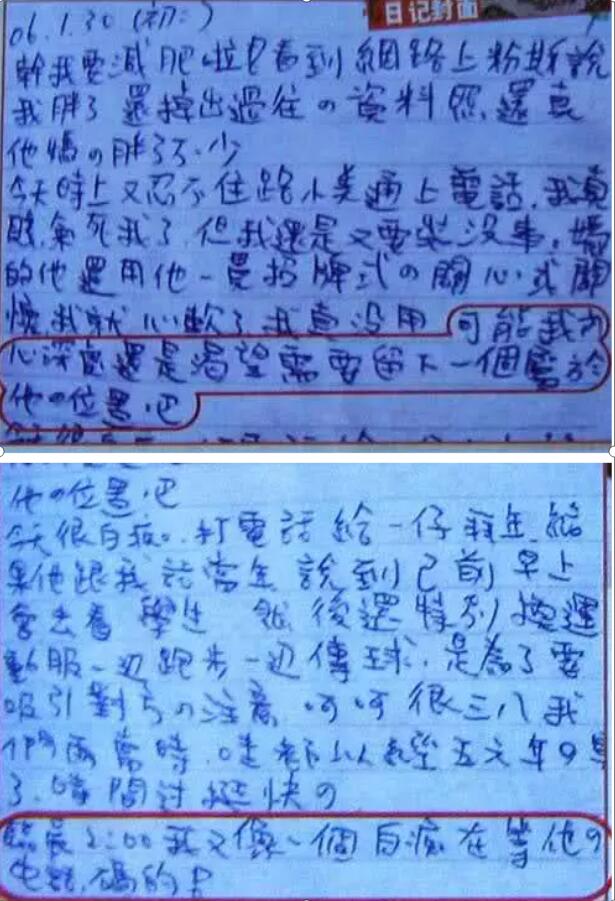 日记封面
06.1.30(初二)
幹我要減肥啦!看到網路上粉斯說
我胖了 還撐出過往の資料照.還真
他媽の胖了不少
今天時上又忍不住跟小美通上電話.我真
的氣死我了.但我還是又要裝沒事.媽
的他還用他一貫招牌式の關心或關
懷我就心軟了.我真沒用 可能我內
心深處還是渴望需要留下一個屬於
他の位置.吧
他の位置.吧
今天很白痴.打電話給一仔 結
果他跟我 說到已前早上
會去看學生 然後還特別換運
動服一边跑步一边傳球.是為了要
吸引對方の注意.呵呵很三八我
們 時.
了.時間过挺快の
臨晨2:00我又像一個白痴在等他の
电話.碼的!